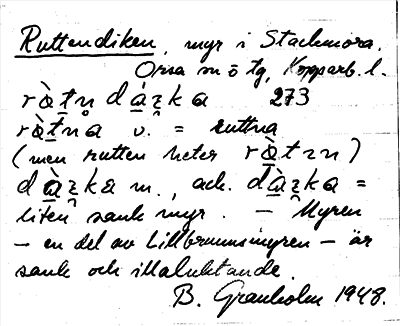 Ruttendiken, myr i Stackmora,
Orsa sn ö tg, Kopparb. l.
ràtn dázka 273
ràtna v. = ruttna
(men rutten heter ràtzn)
dàzka m., ack. dàzka =
liten sank myr. — Myren
– en del av Lillbrunnsmyren – är
sank och illaluktande.
B. Granholm 1948.